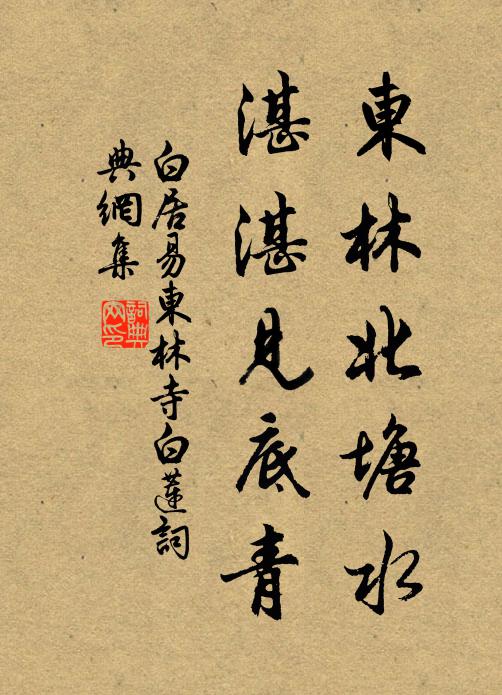 東林北塘水
湛湛見底青
白居易東林寺白蓮詞
典網集
詞典网印